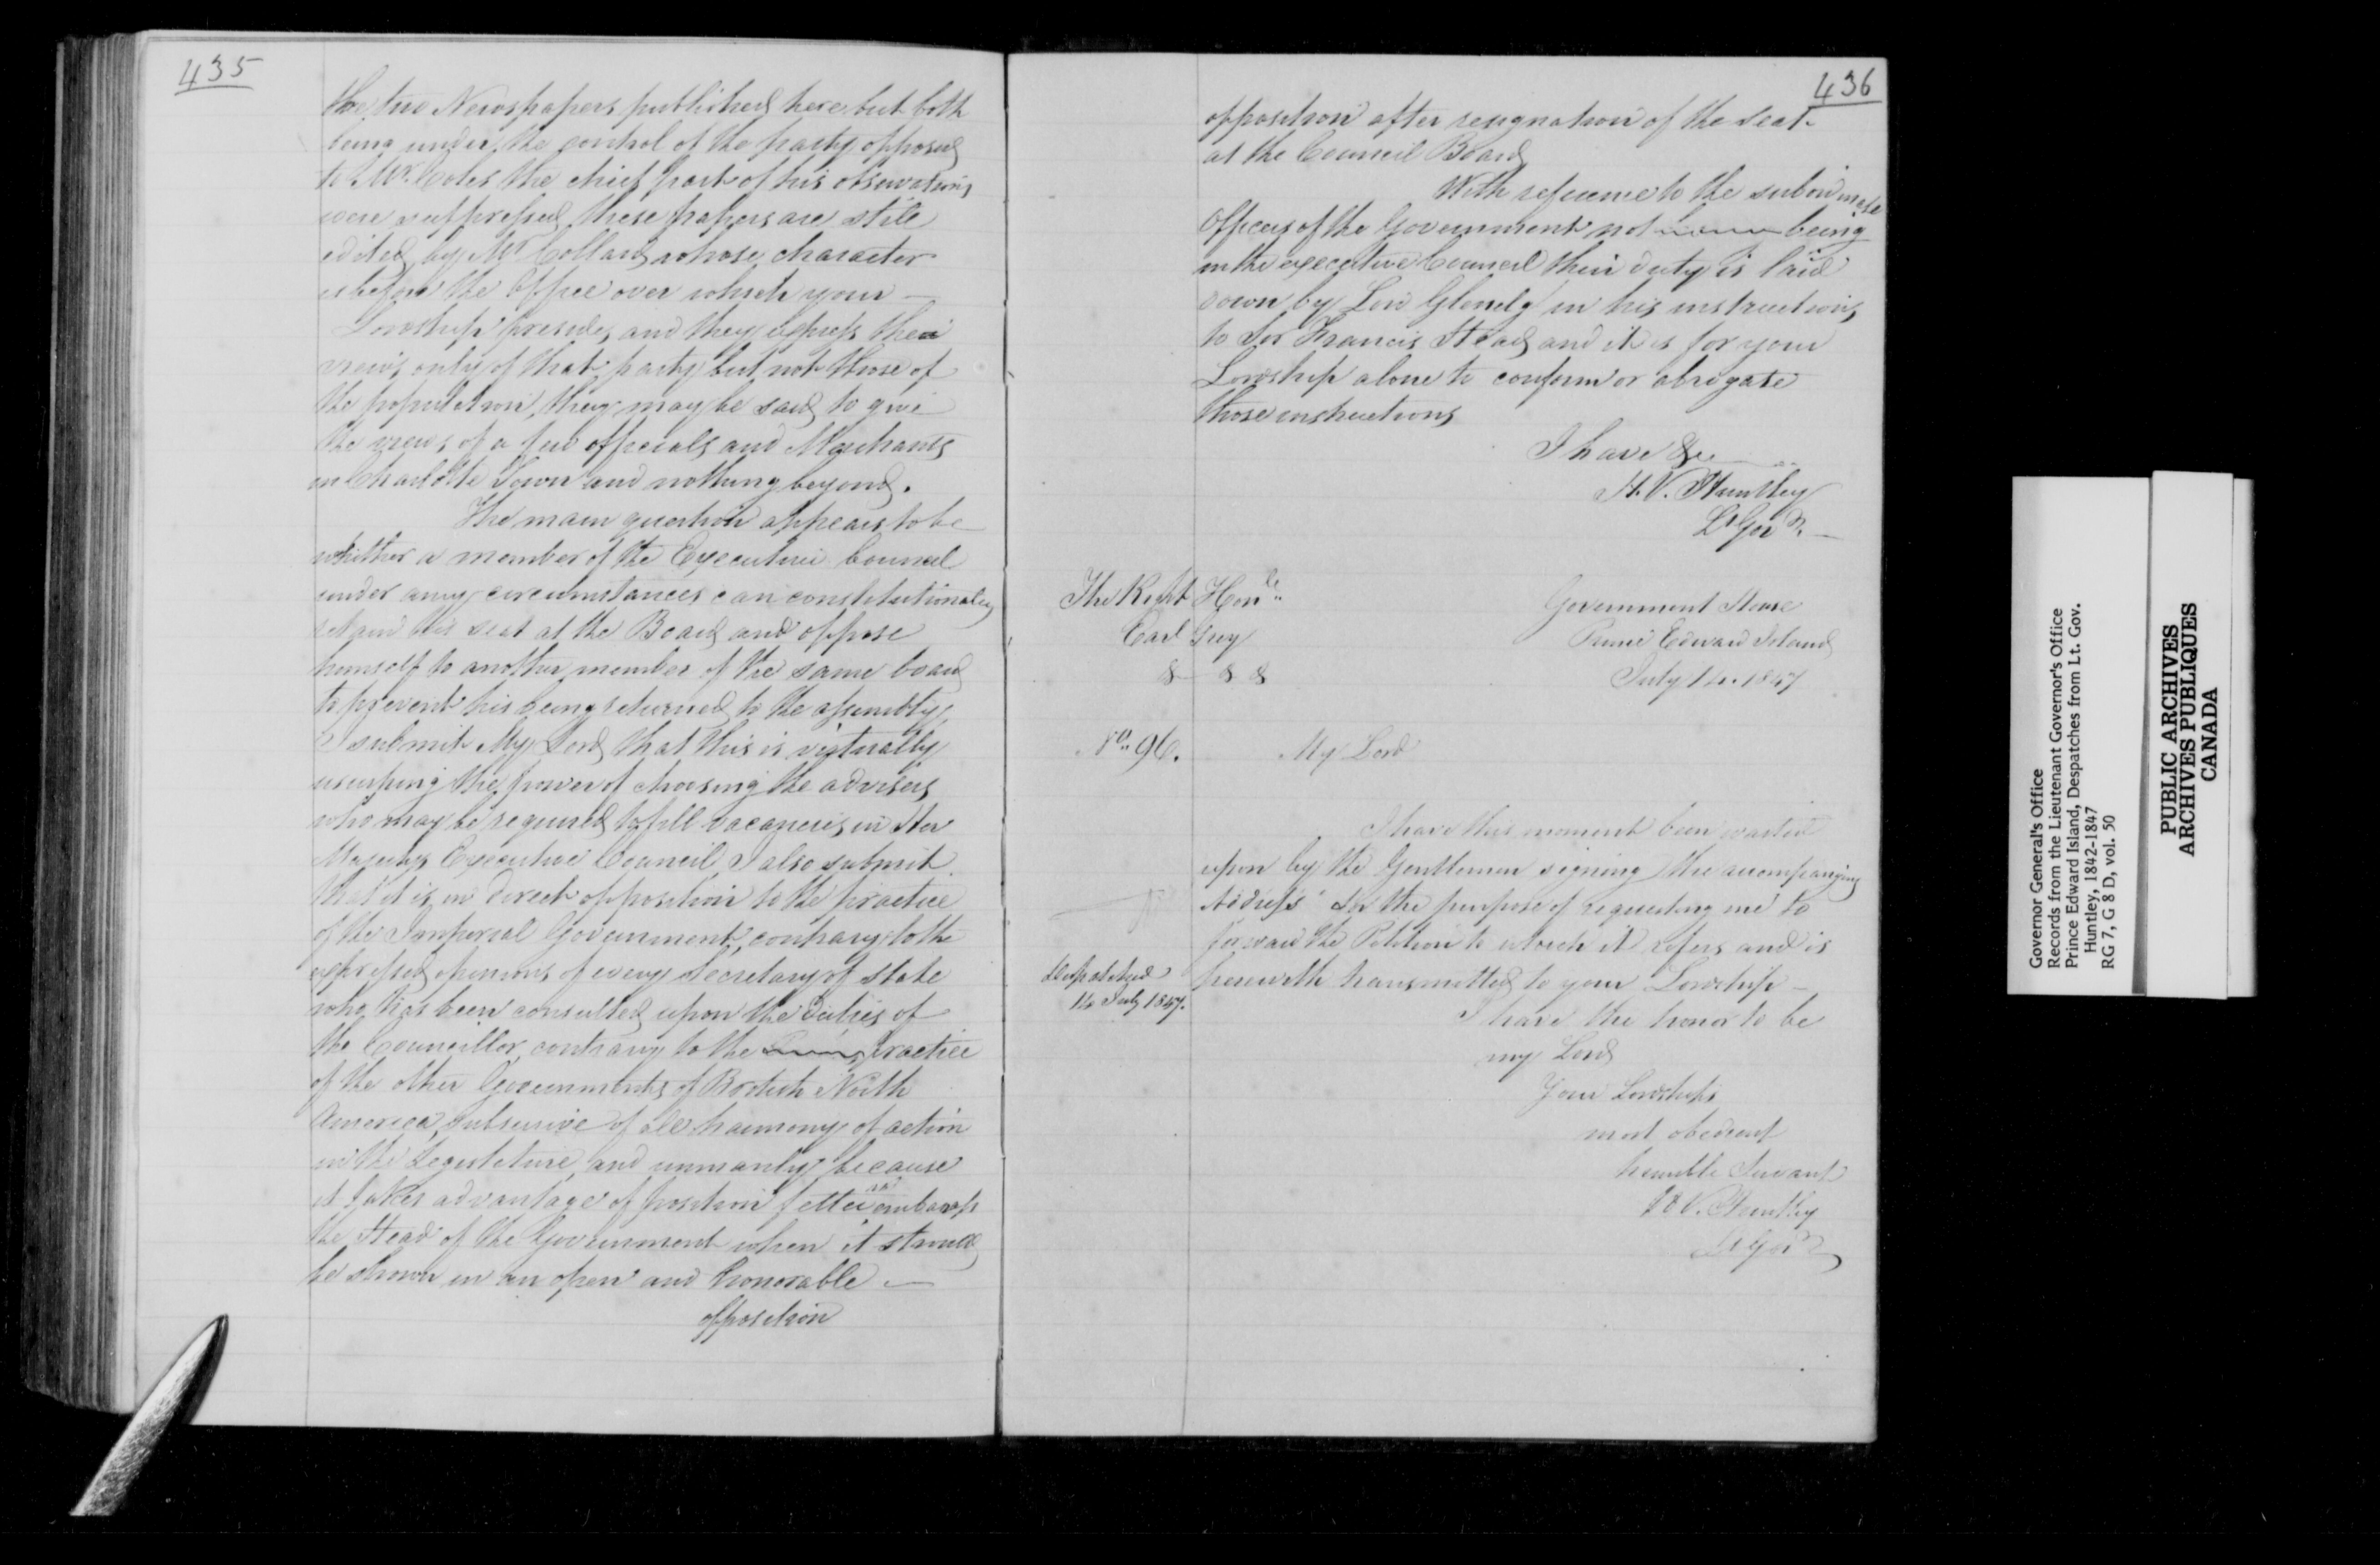 435
the two Newspapers published here but both
being under the control of the party opposed
to Mr. Coles the chief part of his observations
were suppressed, these papers are still
edited by Mr Collard whose character
is before the Office over which your
Lordship presides, and they express the
views only of that party but not those of
the population, they may be said to give
the views of a few officials and Merchants
in Charlotte Town and nothing beyond.
The main question appears to be
whether a member of the Executive Council
under any circumstances can constitutionally
retain his seat at the Board and oppose
himself to another member of the same board
to prevent his being returned to the assembly,
I submit My Lord that this is virtually
usurping the power of choosing the advisers
who may be required to fill vacancies in Her
Majestys Executive Council, I also submit
that it is in direct opposition to the practice
of the Imperial Government, contrary to the
expressed opinions of every Secretary of State
who has been consulted upon the duties of
the Councillor, contrary to the practice
of the other Governments of British North
America, subversive of all harmony of action
in the Legislature, and unmanly because
it takes advantage of position fetter and embarrass
the Head of the Government when it should
be shown in an open and honorable
opposition
436
opposition after resignation of the seat
at the Council Board
With reference to the subordinate
Officers of the Government not being
in the executive Council their duty is laid
down by Lord Glenelg in his instructions
to Sir Francis Head and it is for your
Lordship alone to confirm or abrogate
those instructions
I have &c
H. V. Huntley
Lt Govr.
The Right Honble
Earl Grey
& & &
Government House
Prince Edward Island
July 14. 1847
No. 96.
My Lord
I have this moment been waited
upon by the Gentlemen signing the accompanying
Address for the purpose of requesting me to
forward the Petition to which it refers and is
herewith transmitted to your Lordship
Despatched
14 July 1847.
I have the honor to be
my Lord
Your Lordships
most obedient
humble Servant
H V. Huntley
Lt Govr
Governor General's Office
Records from the Lieutenant Governor's Office
Prince Edward Island, Despatches from Lt. Gov.
Huntley, 1842-1847
RG 7, G 8 D, vol. 50
PUBLIC ARCHIVES
ARCHIVES PUBLIQUES
CANADA